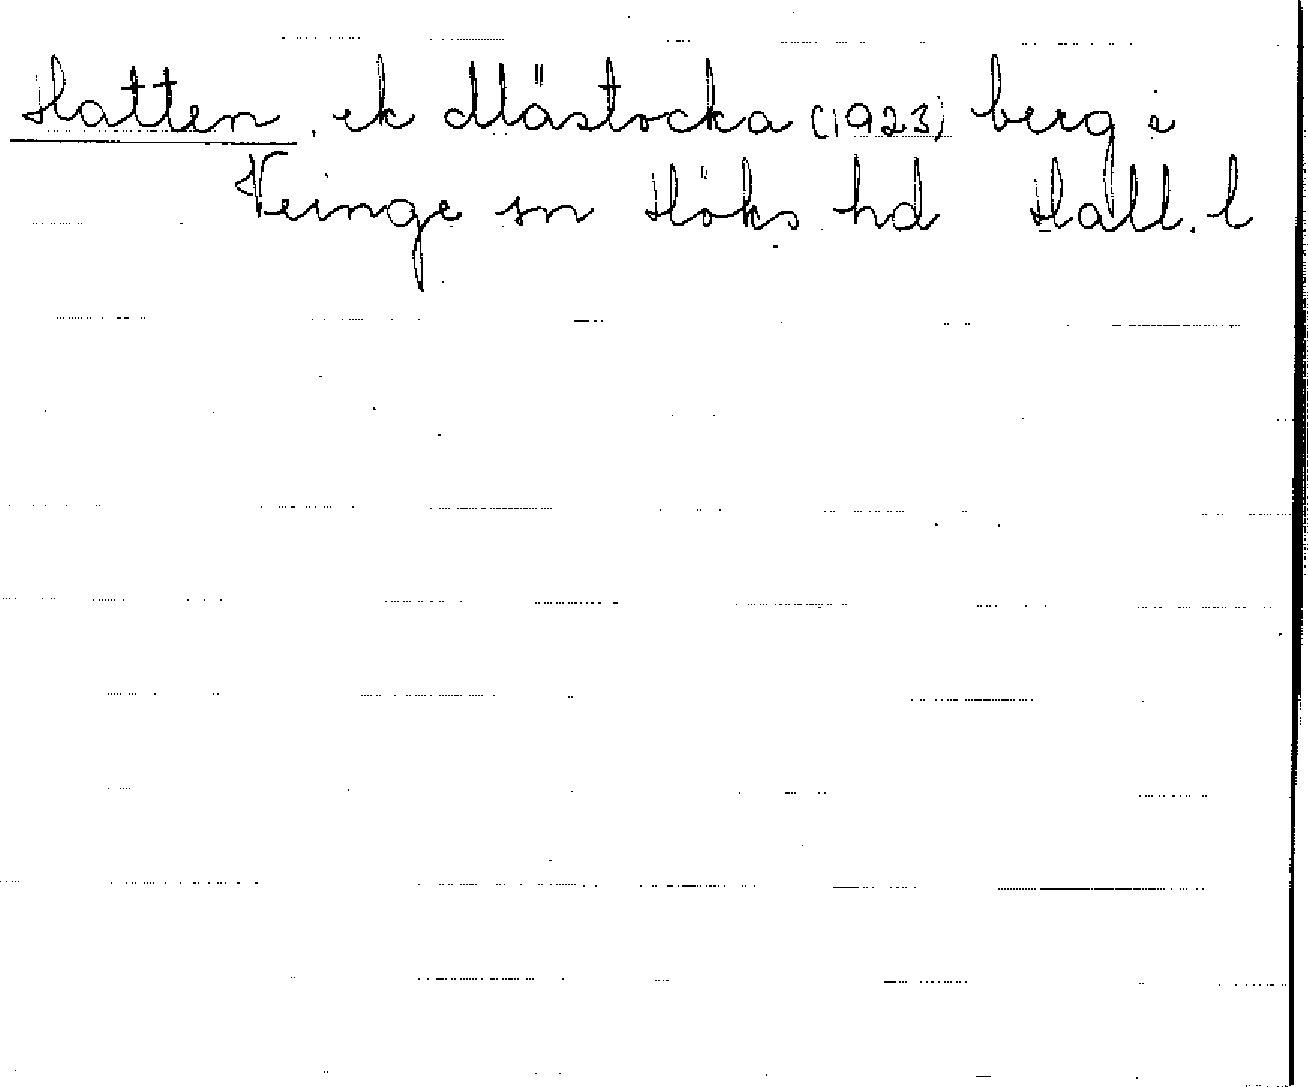 Hatten, ek Mästocka (1923) berg i
Veinge sn Höks hd Hall. l